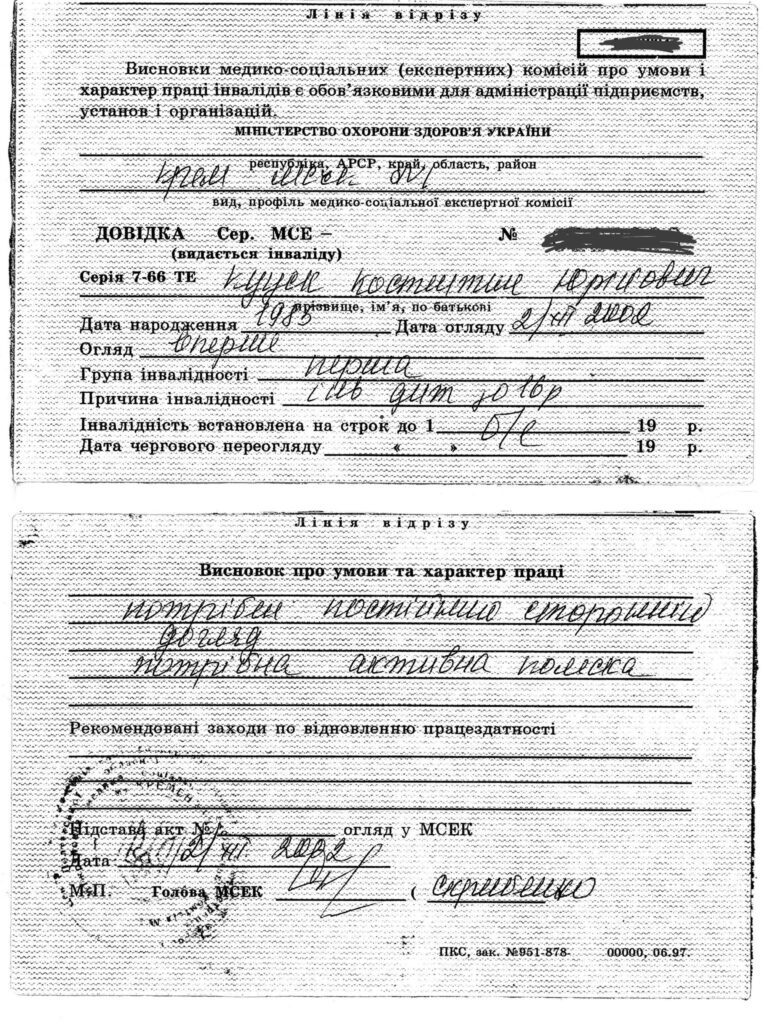 Лінія відрізу
Висновки медико-соціальних (експертних) комісій про умови і
характер праці інвалідів є обов'язковими для адміністрації підприємств,
установ і організацій.
МІНІСТЕРСТВО ОХОРОНИ ЗДОРОВ'Я УКРАЇНИ
республіка, АРСР, край, область, район
Крем
вид, профіль медико-соціальної експертної комісії
ДОВІДКА Сер. МСЕ – №
(видається інваліду)
Серія 7-66 ТЕ Куцск Костянтин Юрійович
прізвище, ім'я, по батькові
Дата народження 1983 Дата огляду 2/XII 2002
Огляд вперше
Група інвалідності перша
Причина інвалідності інв дит до 16р
Інвалідність встановлена на строк до 1 б/с 19 р.
Дата чергового переогляду « » 19 р.
Лінія відрізу
Висновок про умови та характер праці
потрібен постійний сторонній
догляд
потрібна активна коляска
Рекомендовані заходи по відновленню працездатності
Підстава акт № огляд у МСЕК
Дата 2/XII 2002
М.П. Голова МСЕК ( Скрибенко
ПКС, зак. №951-878- 00000, 06.97.